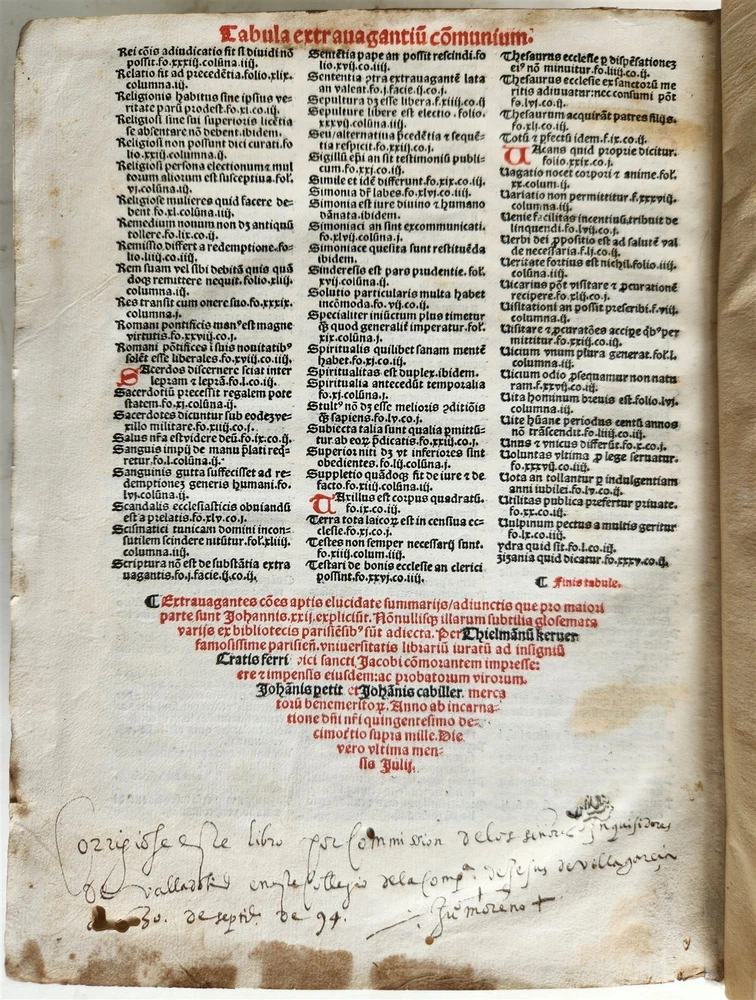 Tabula extrauagantiū cōmunium.
Rei cōis adiudicatio fit si diuidi nō
possit.fo.xxxij.colūna.iiij.
Relatio fit ad precedētia.folio.xlix.
columna.iij.
Religionis habitus sine ipsius ve-
ritate parū prodest.fo.xl.co.iij.
Religiosi sine sui superioris licētia
se absentare nō debent.ibidem.
Religiosi non possunt dici curati.fo
lio.xxxij.columna.ij.
Religiosi persona electionum et mul
torum aliorum est susceptiua.fol.
vj.colūna.iij.
Religiose mulieres quid facere de-
bent fo.xl.colūna.iij.
Remedium nouum non dʒ antiquū
tollere.fo.lix.co.ij.
Remissio differt a redemptione.fo-
lio.liij.co.iiij.
Rem suam vel sibi debitā quis quā
remittere nequit.folio.xlij.
columna.iij.
Res transit cum onere suo.fo.xxxix.
columna.j.
Romani pontificis est magne
virtutis.fo.xxvij.co.j.
Romani pōtifices i suis nouitatibꝰ
solēt esse liberales.fo.xvij.co.iiij.
Sacerdos discernere sciat inter
lepram et leprā.fo.l.co.iij.
Sacerdotiū precessit regalem pote
statem.fo.xj.colūna.ij.
Sacerdotes dicuntur sub eodeʒ ve-
xillo militare.fo.xiij.co.j.
Salus nr̄a est videre deū.fo.ix.co.ij.
Sanguis impij de manu p̄lati req̄-
retur.fo.l.colūna.ij.
Sanguinis gutta suffecisset ad re-
demptioneʒ generis humani.fo.
lvj.colūna.ij.
Scandalis ecclesiasticis obuiandū
est a prelatis.fo.xlv.co.j.
Scismatici tunicam domini incon-
sutilem scindere nitūtur.fol.xliij.
columna.iij.
Scriptura nō est de substātia extra
uagantis.fo.j.facie.ij.co.ij.
Sentētia pape an possit rescindi.fo
lio.xvij.co.iij.
Sententia ꝯtra extrauagantē lata
an valeat.fo.j.facie.ij.co.j.
Sepultura dʒ esse libera.f.xiiij.co.ij
Sepulture libere est electio.folio.
xxxvij.colūna.iij.
Seu/alternatiua p̄cedētia et sequē-
tia respicit.fo.xxij.co.j.
Sigillū ep̄i an sit testimoniū publi-
cum.fo.xxj.co.ij.
Simile et idē differunt.fo.xix.co.iij.
Simonia dr̄ labes.fo.xlvj.co.iij.
Simonia est iure diuino et humano
dānata.ibidem.
Simoniaci an sint excommunicati.
fo.xlvij.colūna.j.
Simoniace quesita sunt restituēda
ibidem.
Sinderesis est pars prudentie.fol.
xvij.colūna.iij.
Solutio particularis multa habet
incōmoda.fo.vij.co.ij.
Specialiter iniūctum plus timetur
q̄ꝫ quod generalit̄ imperatur.fol.
xix.colūna.j.
Spiritualis quilibet sanam mentē
habet.fo.xj.co.iij.
Spiritualitas est duplex.ibidem.
Spiritualia antecedūt temporalia
fo.xj.colūna.j.
Stultꝰ nō dʒ esse melioris ꝯditiōis
q̄ꝫ sapiens.fo.lv.co.j.
Subiecta talia sunt qualia p̄mittū-
tur ab eoꝝ p̄dicatis.fo.xxij.co.j.
Superiori dʒ vt inferiores sint
obedientes.fo.lij.colūna.j.
Suppletio quādoꝗ fit de iure et de
facto.fo.xiij.colūna.iij.
Taxillus est corpus quadratū.
fo.ix.co.iij.
Terra tota laicoꝝ est in censiua ec-
clesie.fo.xj.co.j.
Testes non semper necessarij sunt.
fo.xiij.colum.iij.
Testari de bonis ecclesie an clerici
possint.fo.xxvj.co.iij.
Thesaurus ecclesie ꝑ dispēsationeʒ
eiꝰ nō minuitur.fo.liij.co.ij.
Thesaurus ecclesie ex sanctorū me
ritis adiuuatur:nec consumi pōt
fo.lvj.co.ij.
Thesaurum acquirāt patres filijs.
fo.xlj.co.iij.
Totū et ꝑfectū idem.f.ix.co.ij.
Uacans quid proprie dicitur.
folio.xxix.co.j.
Uagatio nocet corpori et anime.fol.
xx.colum.ij.
Uariatio non permittitur.f.xxxviij.
columna.iij.
Uenie facilitas incentiuū.tribuit de
linquendi.fo.lvij.co.j.
Uerbi dei ꝓpositio est ad salutē val
de necessaria.f.lj.co.ij.
Ueritate fortius est nichil.folio.iiij.
colūna.iij.
Uicarius pōt visitare et ꝓcurationē
recipere.fo.xlij.co.j.
Uisitationi an possit prescribi.f.viij.
columna.ij.
Uisitare et ꝓcuratōes accipe qb̄ꝰ per
mittitur.fo.xxij.co.ij.
Uicium vnum plura generat.fol.l.
columna.iij.
Uicium odio ꝓsequamur non natu
ram.f.xxvij.co.ij.
Uita hominum breuis est.folio.lvj.
columna.iij.
Uite hūane periodus centū annos
nō trāscendit.fo.liiij.co.iij.
Unus et vnicus differūt.fo.x.co.j.
Uoluntas vltima ꝓ lege seruatur.
fo.xxxvij.co.iiij.
Uota an tollantur ꝑ indulgentiam
anni iubilei.fo.lv.co.ij.
Utilitas publica prefertur priuate.
fo.xx.co.ij.
Uulpinum pectus a multis geritur
fo.lx.co.iij.
ydra quid sit.fo.l.co.iij.
ʒiʒania quid dicatur.fo.xxxv.co.ij.
¶ Finis tabule.
¶ Extrauagantes cōes aptis elucidate summarijs/adiunctis que pro maiori
parte sunt Johannis.xxij.expliciūt. Nōnullisqꝫ illarum subtilia glosemata
varijs ex bibliotecis parisiēsibꝰ sūt adiecta. Per Thielmānū keruer
famosissime parisieñ.vniuersitatis librariū iuratū ad insigniū
Cratis ferri vici sancti Jacobi cōmorantem impresse:
ere et impensis eiusdem:ac probatorum virorum.
Johānis petit et Johānis cabiller. merca
torū benemeritoꝝ. Anno ab incarna-
tione dn̄i nr̄i quingentesimo de-
cimoctio supra mille. Die
vero vltima men-
sis Julij.
Corrigiose este libro por Commission delos senores Inquisidores
de Valladolid en este Collegio dela Compª. de Jesus de villagarcia
a 30. de septiē. de 94. Juº moreno +